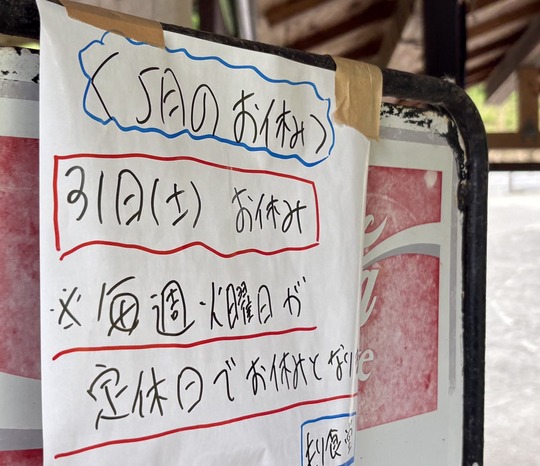 〈5月のお休み〉
31日(土) お休み
※毎週火曜日が
定休日でお休みとなり